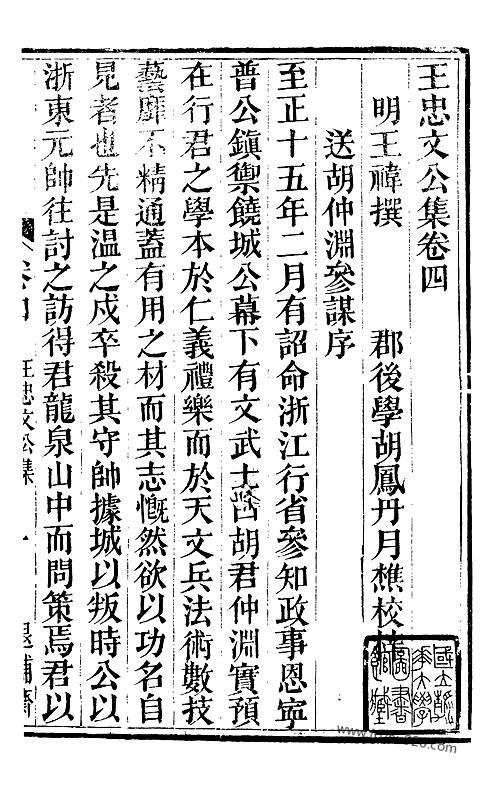 王忠文公集卷四
明王褘撰　郡後學胡鳳丹月樵校
送胡仲淵參謀序
至正十五年二月有詔命浙江行省參知政事恩寧
普公鎮禦饒城公幕下有文武士曰胡君仲淵實預
在行君之學本於仁義禮樂而於天文兵法術數技
藝靡不精通蓋有用之材而其志慨然欲以功名自
見者也先是温之戍卒殺其守帥據城以叛時公以
浙東元帥往討之訪得君龍泉山中而問策焉君以
卷四　王忠文公集　一　退補齋
國立
大學
圖書
館藏